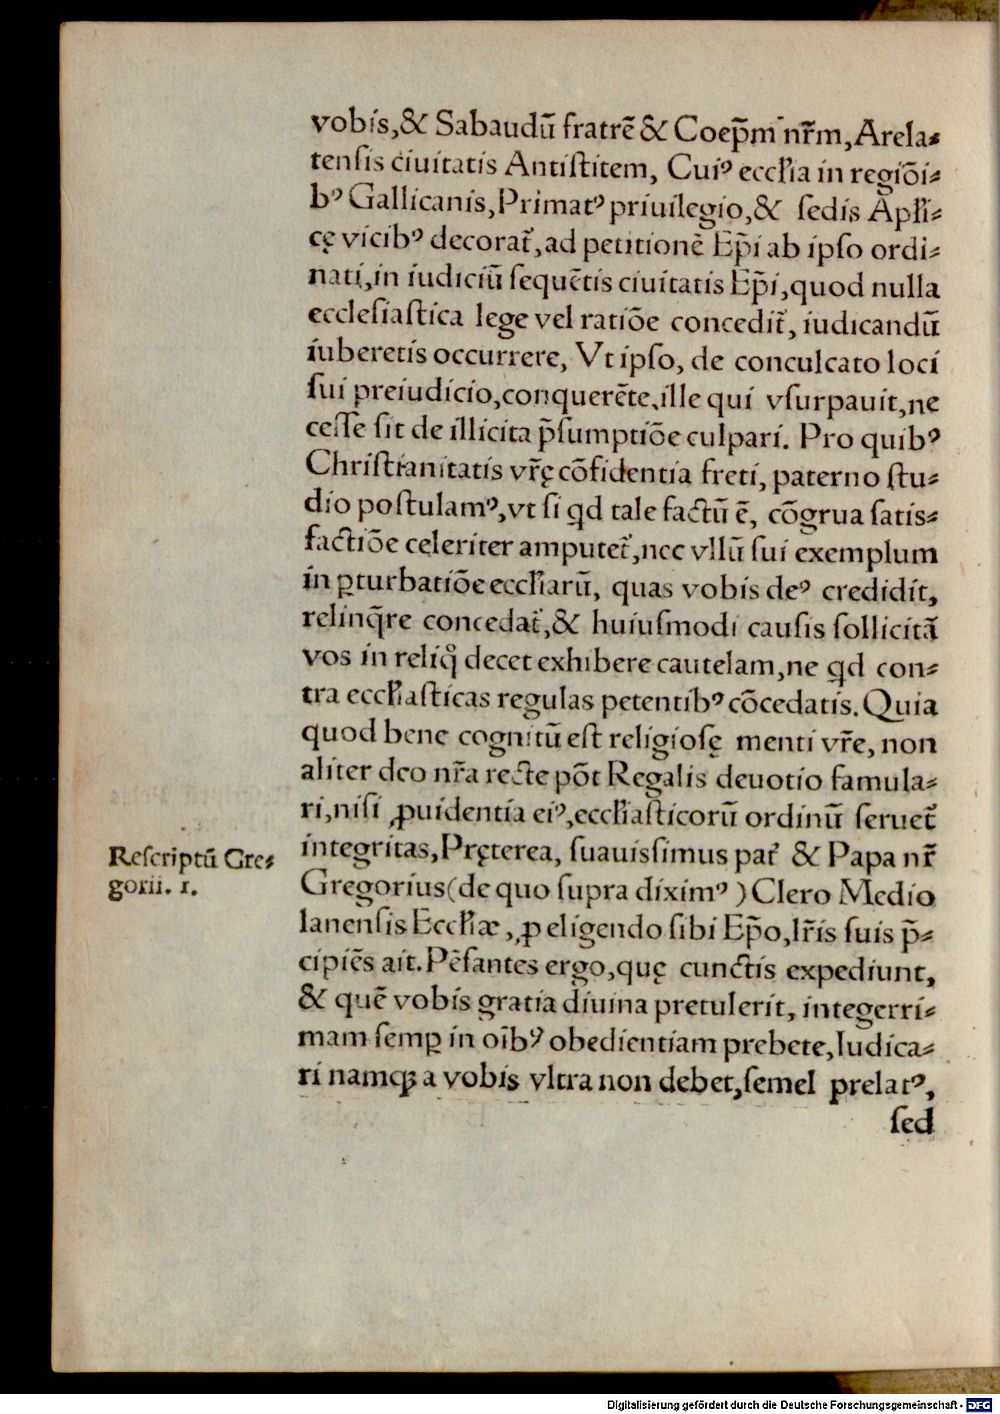 vobis,& Sabaudū fratrē & Coep̄m nr̄m, Arela-
tensis ciuitatis Antistitem, Cuiꝰ eccl̄ia in regiōi-
bꝰ Gallicanis, Primatꝰ priuilegio,& sedis Apl̄i-
cę vicibꝰ decorat᷑, ad petitionē Ep̄i ab ipso ordi-
nati, in iudiciū sequētis ciuitatis Ep̄i, quod nulla
ecclesiastica lege vel ratiōe concedit᷑, iudicandū
iuberetis occurrere, Vt ipso, de conculcato loci
sui preiudicio, conquerēte, ille qui vsurpauit, ne
cesse sit de illicita p̄sumptiōe culpari. Pro quibꝰ
Christianitatis vr̄ę cōfidentia freti, paterno stu-
dio postulamꝰ, vt si qd tale factū ē, cōgrua satis-
factiōe celeriter amputet᷑, nec vllū sui exemplum
in ꝑturbatiōe eccl̄iarū, quas vobis deꝰ credidit,
relinq̄re concedat᷑,& huiusmodi causis sollicitā
vos in reliqͦ decet exhibere cautelam, ne qd con-
tra eccl̄iasticas regulas petentibꝰ cōcedatis. Quia
quod bene cognitū est religiosę menti vr̄e, non
aliter deo nr̄a recte pōt Regalis deuotio famula-
ri, nisi ꝓuidentia eiꝰ, eccl̄iasticorū ordinū seruet᷑
integritas, Pręterea, suauissimus pat᷑ & Papa nr̄
Gregorius (de quo supra diximꝰ) Clero Medio
lanensis Eccl̄iæ, ꝓ eligendo sibi Ep̄o, lr̄is suis p̄-
cipiēs ait. Pēsantes ergo, quę cunctis expediunt,
& quē vobis gratia diuina pretulerit, integerri-
mam semꝑ in oībꝰ obedientiam prebete, Iudica-
ri namqꝫ a vobis vltra non debet, semel prelatꝰ,
sed
Rescriptū Gre-
gorii. 1.
Digitalisierung gefördert durch die Deutsche Forschungsgemeinschaft - DFG